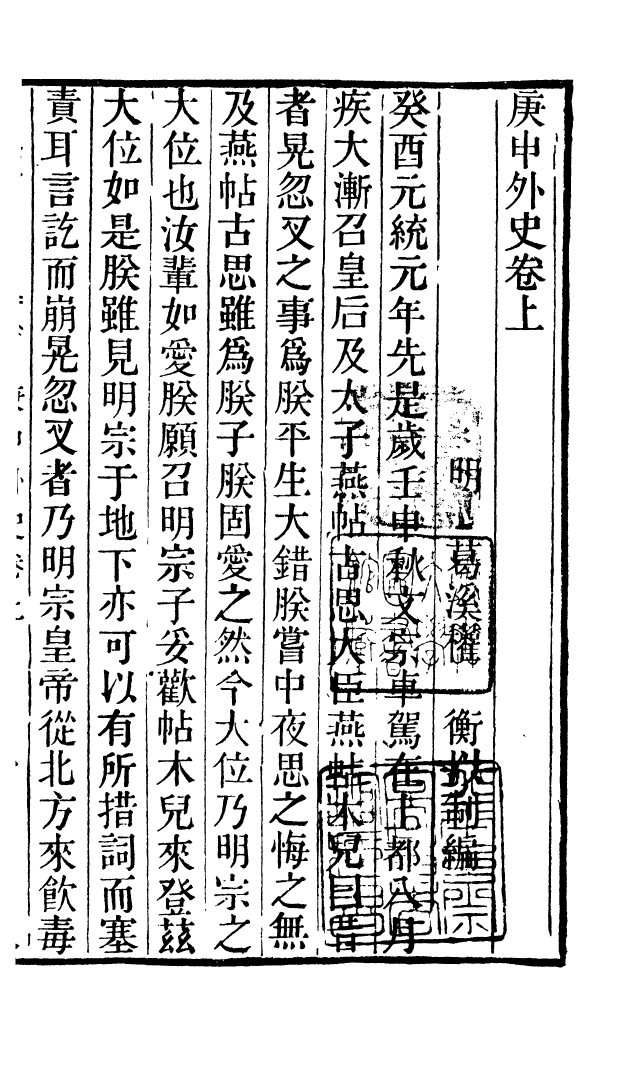 庚申外史卷上
明 葛溪權 衡以制編
癸酉元統元年先是歲壬申秋文宗車駕在上都八月
疾大漸召皇后及太子燕帖古思大臣燕帖木兒曰昔
者晃忽叉之事爲朕平生大錯朕嘗中夜思之悔之無
及燕帖古思雖爲朕子朕固愛之然今大位乃明宗之
大位也汝輩如愛朕願召明宗子妥歡帖木兒來登茲
大位如是朕雖見明宗于地下亦可以有所措詞而塞
責耳言訖而崩晃忽叉者乃明宗皇帝從北方來飲毒